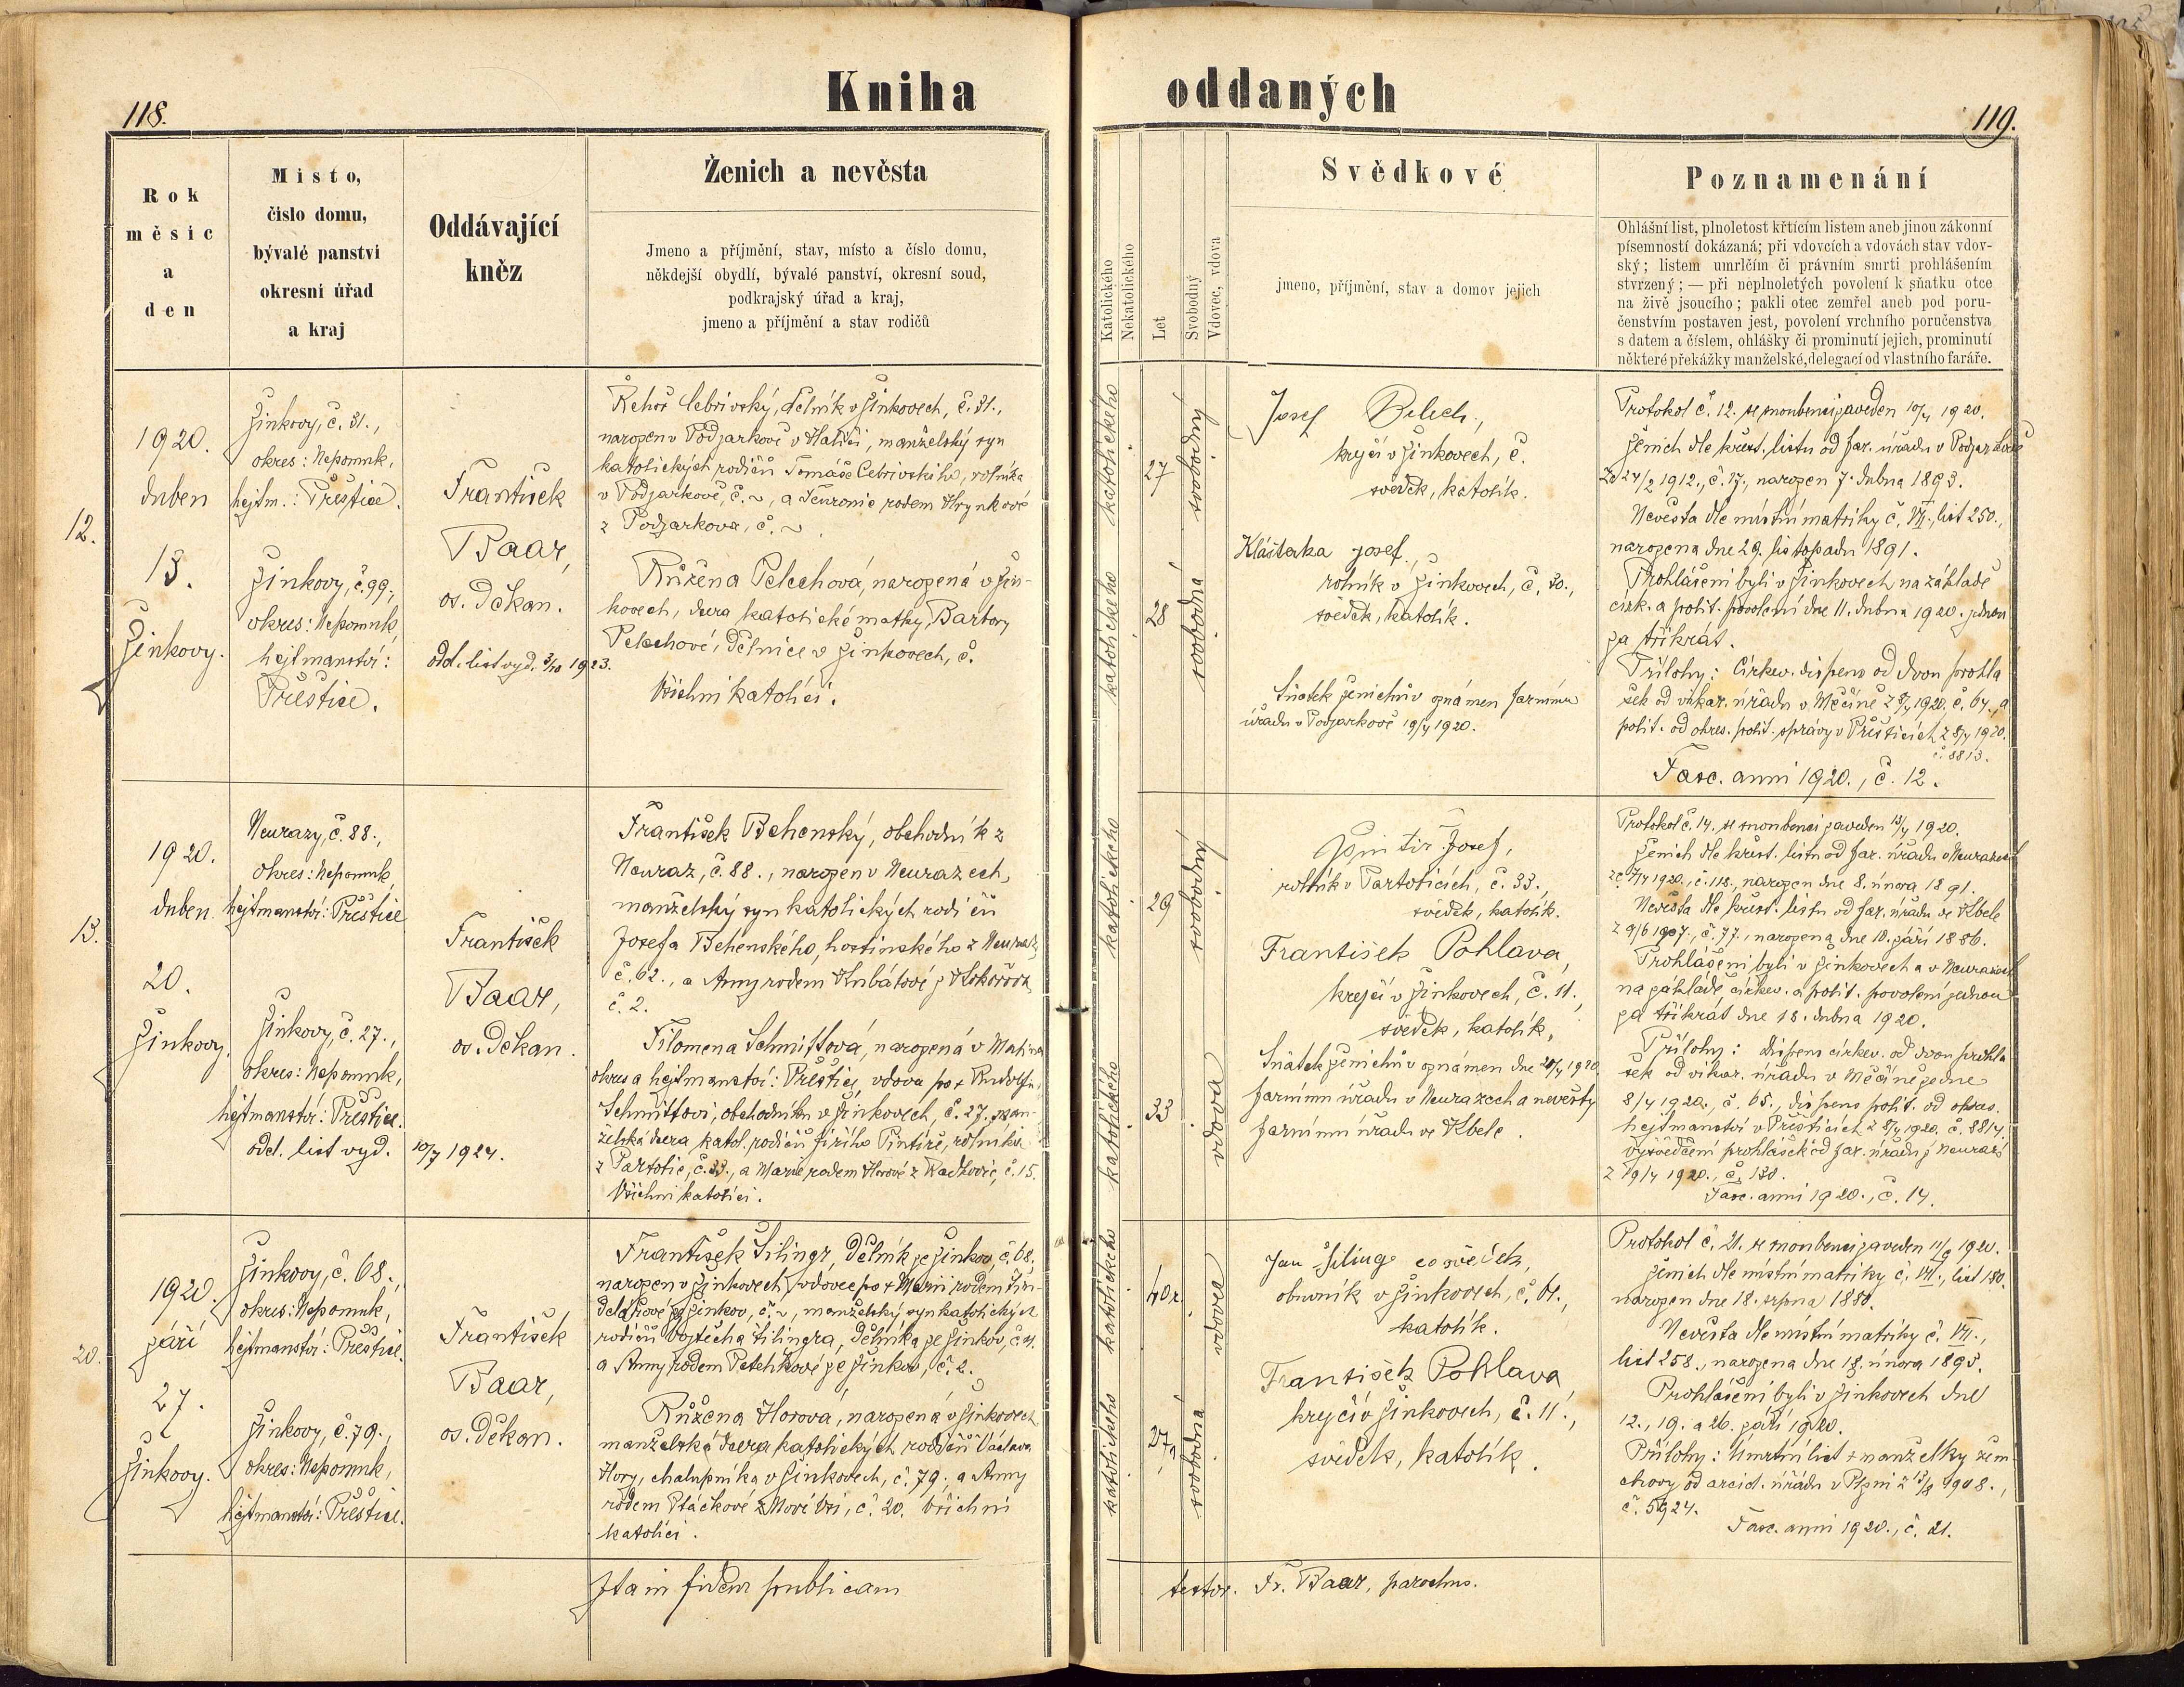 118.
Kniha
Rok
měsíc
a
den
Místo,
číslo domu,
bývalé panství
okresní úřad
a kraj
Oddávající
kněz
Ženich a nevěsta
Jmeno a příjmění, stav, místo a číslo domu,
někdejší obydlí, bývalé panství, okresní soud,
podkrajský úřad a kraj,
jmeno a příjmění a stav rodičů
12.
1920.
duben
13.
Žinkovy.
Žinkovy, č. 31.,
okres: Nepomuk,
hejtm.: Přeštice.
Žinkovy, č. 99.,
okres: Nepomuk,
hejtmanství:
Přeštice.
František
Baar,
os. Děkan.
odd. list vyd. 3/10 1923.
Řehoř Cebrivský, dělník v Žinkovech, č. 31.,
narozen v Podjarkově v Haliči, manželský syn
katolických rodičů Tomáše Cebrivského, rolníka
v Podjarkově, č. ~, a rodem Hrynkové
z Podjarkova, č. ~.
Růžena Pelechová, narozená v Žin-
kovech, dcera katolické matky, Barbory
Pelechové, dělnice v Žinkovech, č.
Všichni katolíci.
13.
1920.
duben.
20.
Žinkovy.
Neurazy, č. 88.,
okres: Nepomuk,
hejtmanství: Přeštice
Žinkovy, č. 27.,
okres: Nepomuk,
hejtmanství: Přeštice.
odd. list vyd. 10/7 1924.
František
Baar,
os. Děkan.
František Behenský, obchodník z
Neuraz, č. 88., narozen v Neurazech,
manželský syn katolických rodičů
Josefa Behenského, hostinského z Neuraz,
č. 62., a Anny rodem Kubátové z Kokořova,
č. 2.
Filomena Schmittová, narozená v
okres a hejtmanství: Přeštice, vdova po + Rudolfu
Schmittovi, obchodníku v Žinkovech, č. 27., man-
želská dcera katol. rodičů Jiřího Pintíře, rolníka
z Partoltic, č. 33., a Marie rodem Horové z Radkovic, č. 15.
Všichni katolíci.
20.
1920.
září
27.
Žinkovy.
Žinkovy, č. 68.,
okres: Nepomuk,
hejtmanství: Přeštice.
Žinkovy, č. 79.,
okres: Nepomuk,
hejtmanství: Přeštice.
František
Baar,
os. Děkan.
František Šilingr, dělník ze Žinkov, č. 68.,
narozen v Žinkovech, vdovec po + Marii rodem Šin-
ze Žinkov, č. ~, manželský syn katolických
rodičů Vojtěcha Šilingra, dělníka ze Žinkov, č.
a Anny rodem ze Žinkov, č. 2.
Růžena Horová, narozená v Žinkovech
manželská dcera katolických rodičů Václava
Hory, chalupníka v Žinkovech, č. 79., a Anny
rodem Ptáčkové z Nové Vsi, č. 20. Všichni
katolíci.
Ita in fidem publicam
oddaných
119.
Katolického
Nekatolického
Let
Svobodný
Vdovec, vdova
Svědkové
jmeno, příjmění, stav a domov jejich
Poznamenání
Ohlášní list, plnoletost křtícím listem aneb jinou zákonní
písemností dokázaná; při vdovcích a vdovách stav vdov-
ský; listem umrlčím či právním smrti prohlášením
stvrzený; — při neplnoletých povolení k sňatku otce
na živě jsoucího; pakli otec zemřel aneb pod poru-
čenstvím postaven jest, povolení vrchního poručenstva
s datem a číslem, ohlášky či prominutí jejich, prominutí
některé překážky manželské, delegací od vlastního faráře.
katolického
27
svobodný
katolického
28
svobodná
Josef Pelech,
krejčí v Žinkovech, č.
svědek, katolík.
Klásterka Josef,
rolník v Žinkovech, č. 30.,
svědek, katolík.
Sňatek ženichův oznámen farnímu
úřadu v Podjarkově 19/4 1920.
Protokol č. 12. se snoubenci zaveden 10/4 1920.
Ženich dle křest. listu od far. úřadu v Podjarkově
ze 24/2 1912., č. 17., narozen 7. dubna 1893.
Nevěsta dle místní matriky č. VII., list 250.,
narozena dne 29. listopadu 1891.
Prohlášeni byli v Žinkovech na základě
círk. a polit. povolení dne 11. dubna 1920. jednou
za třikrát.
Přílohy: Církev. dispens od dvou prohlá
šek od vikar. úřadu v Měčíně z 8/4 1920. č. 64., a
polit. od okres. polit. správy v Přešticích z 8/4 1920.
č. 8813.
Fasc. anni 1920., č. 12.
katolického
29
svobodný
katolického
33
vdova
Josef,
rolník v Partolticích, č. 33.,
svědek, katolík.
František Pohlava,
krejčí v Žinkovech, č. 11.,
svědek, katolík.
Sňatek ženichův oznámen dne 20/4 1920.
farnímu úřadu v Neurazech a nevěsty
farnímu úřadu ve Kbele.
Protokol č. 14. se snoubenci zaveden 13/4 1920.
Ženich dle křest. listu od far. úřadu v Neurazech
ze 7/4 1920., č. 118., narozen dne 8. února 1891.
Nevěsta dle křest. listu od far. úřadu ve Kbele
z 9/6 1907., č. 77., narozena dne 10. září 1886.
Prohlášeni byli v Žinkovech a v Neurazech
na základě církev. a polit. povolení jednou
za třikrát dne 18. dubna 1920.
Přílohy: dispens církev. od dvou prohlá
šek od vikar. úřadu v Měčíně ze dne
8/4 1920., č. 65., dispens polit. od okres.
hejtmanství v Přešticích z 8/4 1920. č. 8814.
vysvědčení prohlášek od far. úřadu z Neuraz
z 19/4 1920., č. 130.
Fasc. anni 1920., č. 14.
katolického
40 r.
vdovec
katolického
27 r.
svobodná
Jan Šilingr co svědek,
obuvník v Žinkovech, č. 61.,
katolík.
František Pohlava,
krejčí v Žinkovech, č. 11.,
svědek, katolík.
Protokol č. 21. se snoubenci zaveden 11/9 1920.
Ženich dle místní matriky č. VII., list 180.
narozen dne 18. srpna 1880.
Nevěsta dle místní matriky č. VII.,
list 258., narozena dne 18. února 1893.
Prohlášeni byli v Žinkovech dne
12., 19. a 26. září 1920.
Přílohy: Úmrtní list + manželky ženi-
chovy od arcid. úřadu v Plzni z 1908.,
č. 5924.
Fasc. anni 1920., č. 21.
testor. Fr. Baar, parochus.